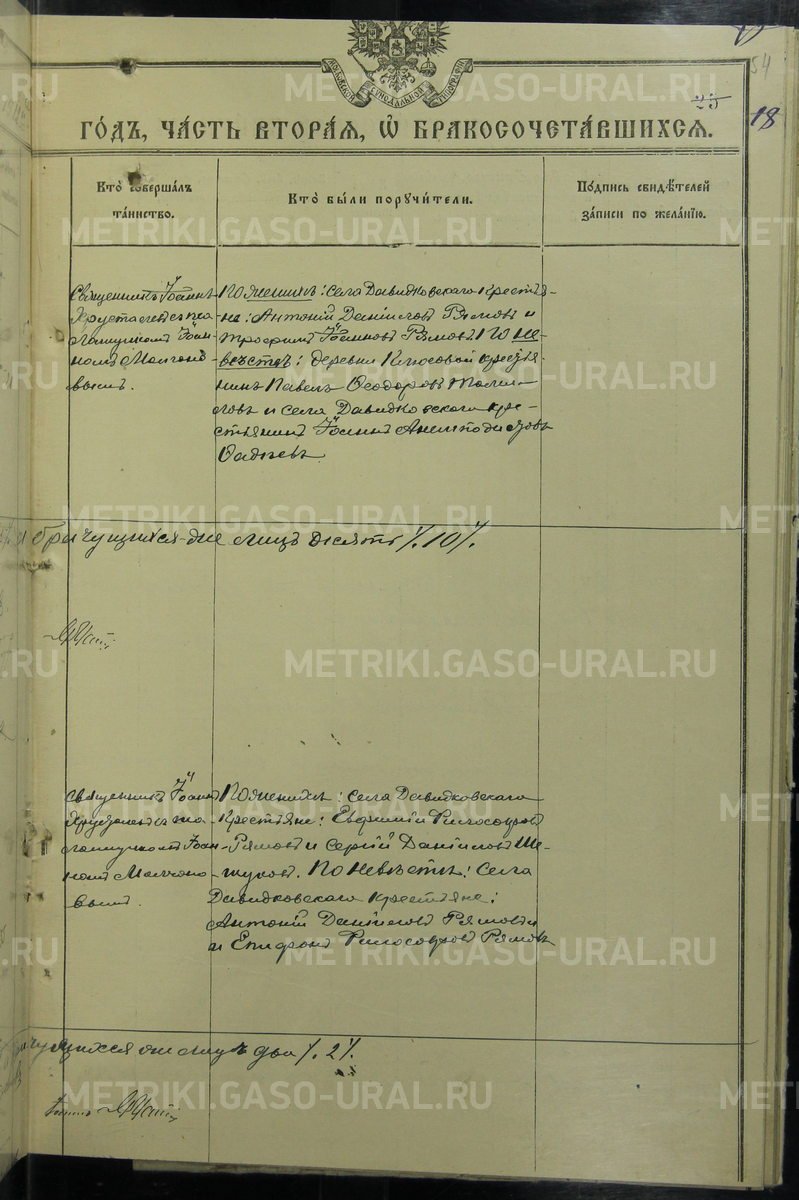 54
25
18
МОСКОВСКОЙ СѴНОДАЛЬНОЙ ТИПОГРАФІИ
ГО́ДЪ, ЧА́СТЬ ВТОРА́Ѧ, Ѽ БРАКОСОЧЕТА́ВШИХСѦ.
Кто̀ соверша́лъ
та́инство.
Кто̀ бы́ли порꙋчи́тели.
По́дпись свидѣ́телей
за́писи по жела́нїю.
Священникъ Іоаннъ
Хрусталевъ съ пса-
ломщикомъ Іоан-
номъ
вымъ.
По женихѣ: села Давыдковскаго крестья-
не: Антоній Даніиловъ Рямовъ и
Трофимъ Іоанновъ Рямовъ. По не-
вѣстѣ: деревни крестья-
нинъ Павелъ Ѳеодоровъ
ловъ и села Давыдковскаго кре-
стьянинъ Іоаннъ Анемподистовъ
брачущихся дне лицъ десять /. 10 /.
Священникъ Іоаннъ
Хрусталевъ съ пса-
ломщикомъ Іоан-
номъ
вымъ.
По женихѣ: села Давыдковскаго
крестьяне: Евфимій Философовъ
Рямовъ и Сергій Даніиловъ Ше-
шуковъ. По невѣстѣ: села
Давыдковскаго крестьяне:
Антоній Даніиловъ Рямовъ
и Епифанъ Философовъ Рямовъ
чущихся лицъ два /. 2 /.
METRIKI.GASO-URAL.RU